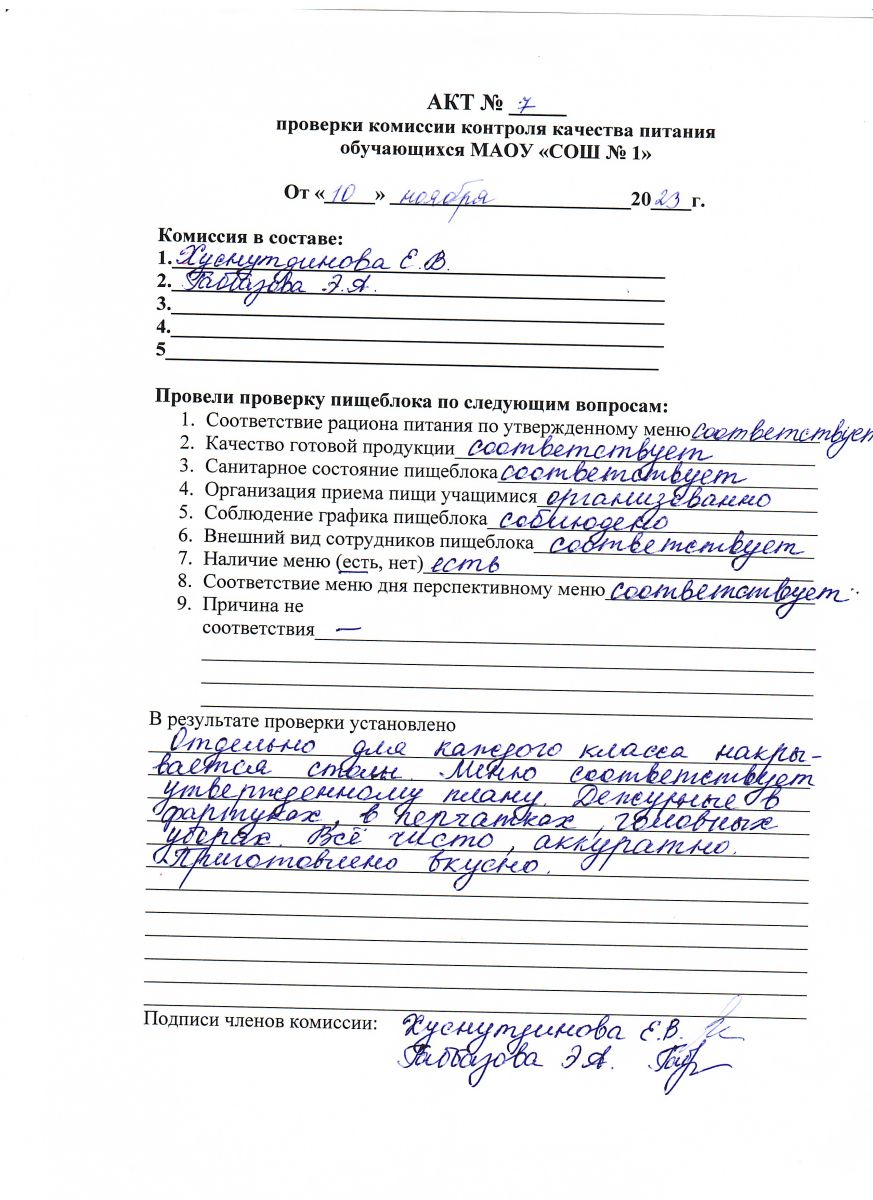 АКТ № 7
проверки комиссии контроля качества питания
обучающихся МАОУ «СОШ № 1»
От «10» ноября 2023 г.
Комиссия в составе:
1. Хуснутдинова Е.В.
2. Габбазова Э.А.
3.
4.
5
Провели проверку пищеблока по следующим вопросам:
1. Соответствие рациона питания по утвержденному меню соответствует
2. Качество готовой продукции соответствует
3. Санитарное состояние пищеблока соответствует
4. Организация приема пищи учащимися организованно
5. Соблюдение графика пищеблока соблюдено
6. Внешний вид сотрудников пищеблока соответствует
7. Наличие меню (есть, нет) есть
8. Соответствие меню дня перспективному меню соответствует
9. Причина не
соответствия —
В результате проверки установлено
Отдельно для каждого класса накры-
вается столы. Меню соответствует
утвержденному плану. Дежурные в
фартуках, в перчатках, головных
уборах. Всё чисто, аккуратно.
Приготовлено вкусно.
Подписи членов комиссии: Хуснутдинова Е.В.
Габбазова Э.А.